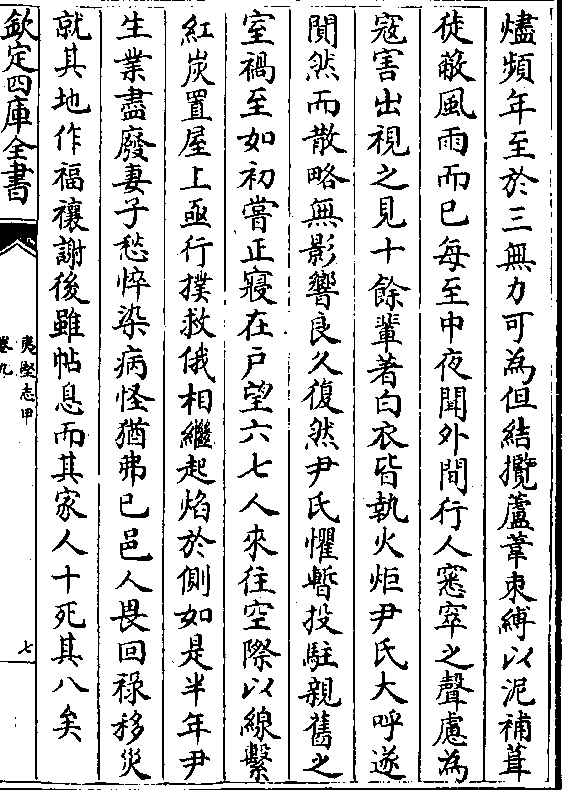 燼頻年至於三無力可為但結攬蘆葦束縛以泥補葺
徒蔽風雨而已每至中夜聞外間行人窸窣之聲慮為
寇害出視之見十餘輩著白衣皆執火炬尹氏大呼遂
閴然而散略無影響良久復然尹氏懼暫投駐親舊之
室禍至如初嘗正寢在戶望六七人來往空際以線繫
紅炭置屋上亟行撲救俄相繼起焰於側如是半年尹
生業盡廢妻子愁悴染病怪猶弗已邑人畏回祿移災
就其地作福禳謝後雖帖息而其家人十死其八矣
欽定四庫全書
夷堅志甲
卷九
七